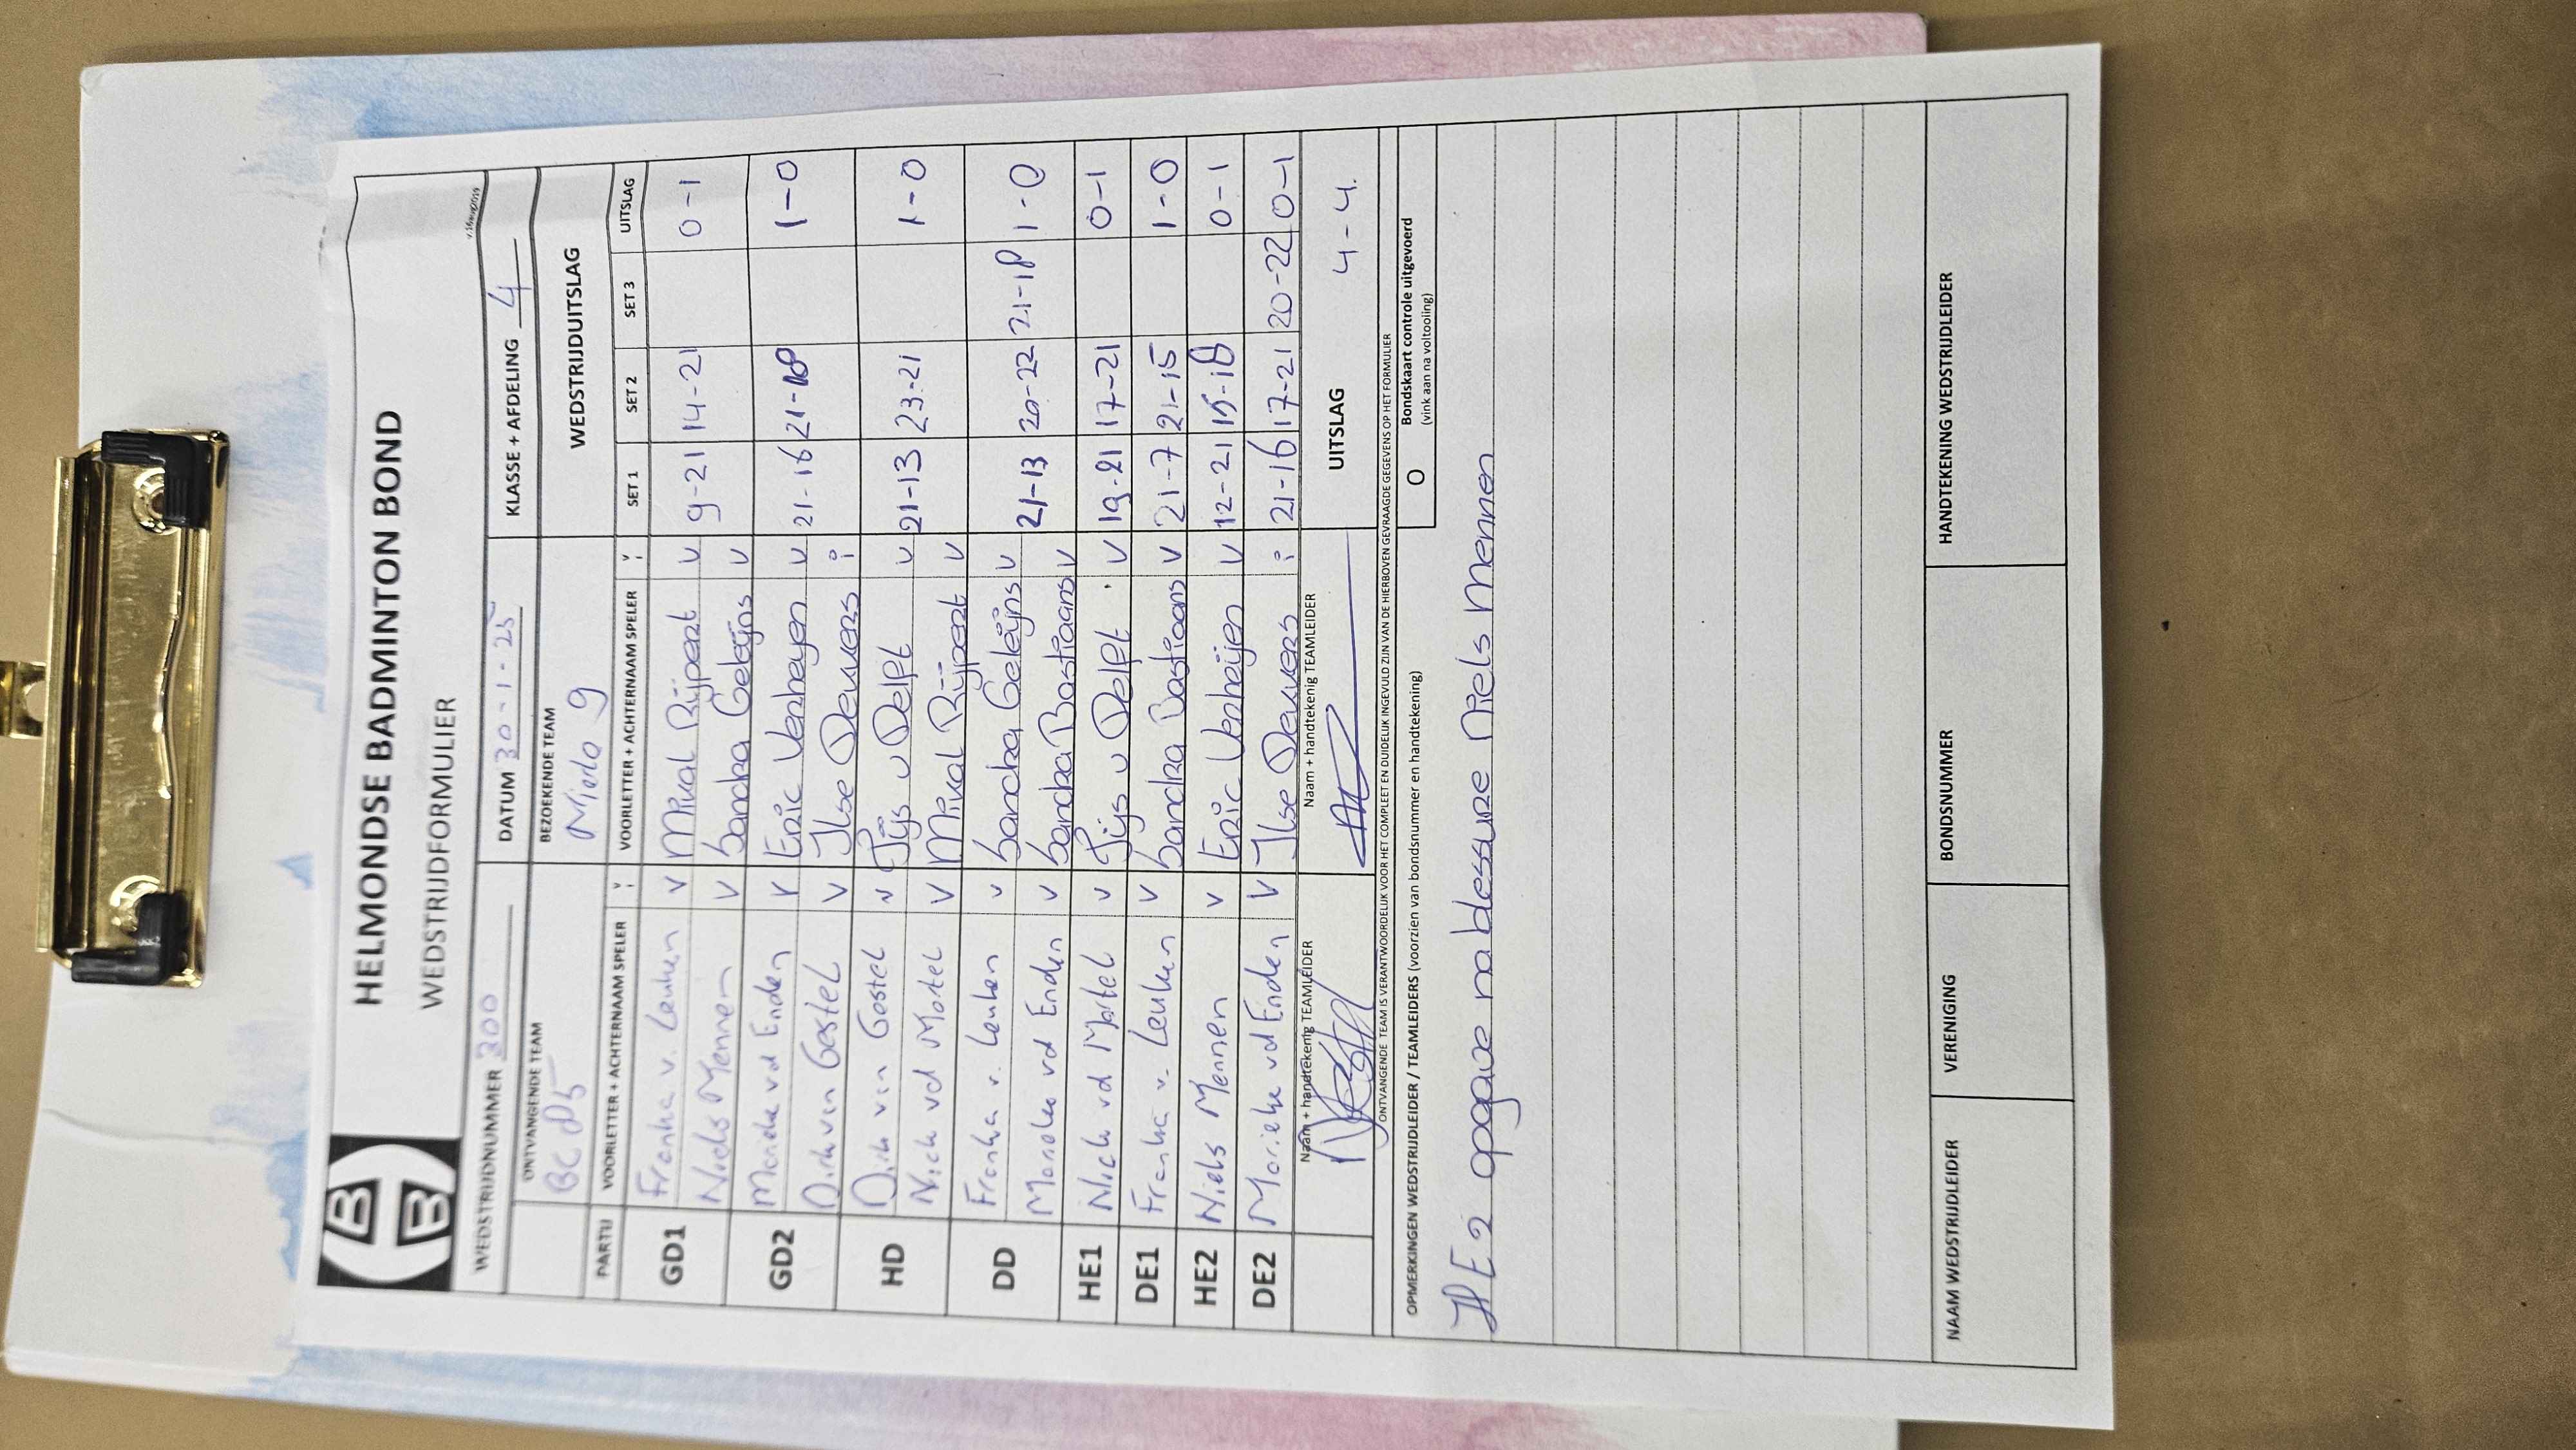 HELMONDSE BADMINTON BOND
WEDSTRIJDFORMULIER
WEDSTRIJDNUMMER 300 DATUM 30-1-25 KLASSE + AFDELING 4
ONTVANGENDE TEAM BEZOEKENDE TEAM WEDSTRIJDUITSLAG
BC P5 Mierlo 9
PARTIJ VOORLETTER + ACHTERNAAM SPELER V i VOORLETTER + ACHTERNAAM SPELER V i SET 1 SET 2 SET 3 UITSLAG
GD1 Franka v. Leuken V Mikal Rijpert V 9-21 14-21 0-1
Niels Mennen V Sandra Geleijns V
GD2 Marieke vd Enden V Eric Verheyen V 21-16 21-18 1-0
Dirk van Gestel V Ilse Deuvers i
HD Dirk van Gestel V Tijs v Delft V 21-13 23-21 1-0
Nick vd Mortel V Mikal Rijpert V
DD Franka v. Leuken V Sandra Geleijns V 21-13 20-22 21-18 1-0
Marieke vd Enden V Sandra Bastiaans V
HE1 Nick vd Mortel V Tijs v Delft V 19-21 17-21 0-1
DE1 Franka v. Leuken V Sandra Bastiaans V 21-7 21-15 1-0
HE2 Niels Mennen V Eric Verheijen V 12-21 15-18 0-1
DE2 Marieke vd Enden V Ilse Deuvers i 21-16 17-21 20-22 0-1
Naam + handtekenig TEAMLEIDER Naam + handtekenig TEAMLEIDER UITSLAG 4-4
ONTVANGENDE TEAM IS VERANTWOORDELIJK VOOR HET COMPLEET EN DUIDELIJK INGEVULD ZIJN VAN DE HIERBOVEN GEVRAAGDE GEGEVENS OP HET FORMULIER
OPMERKINGEN WEDSTRIJDLEIDER / TEAMLEIDERS (voorzien van bondsnummer en handtekening) O Bondskaart controle uitgevoerd
(vink aan na voltooling)
HE2 opgave na blessure Niels Mennen
NAAM WEDSTRIJDLEIDER VERENIGING BONDSNUMMER HANDTEKENING WEDSTRIJDLEIDER